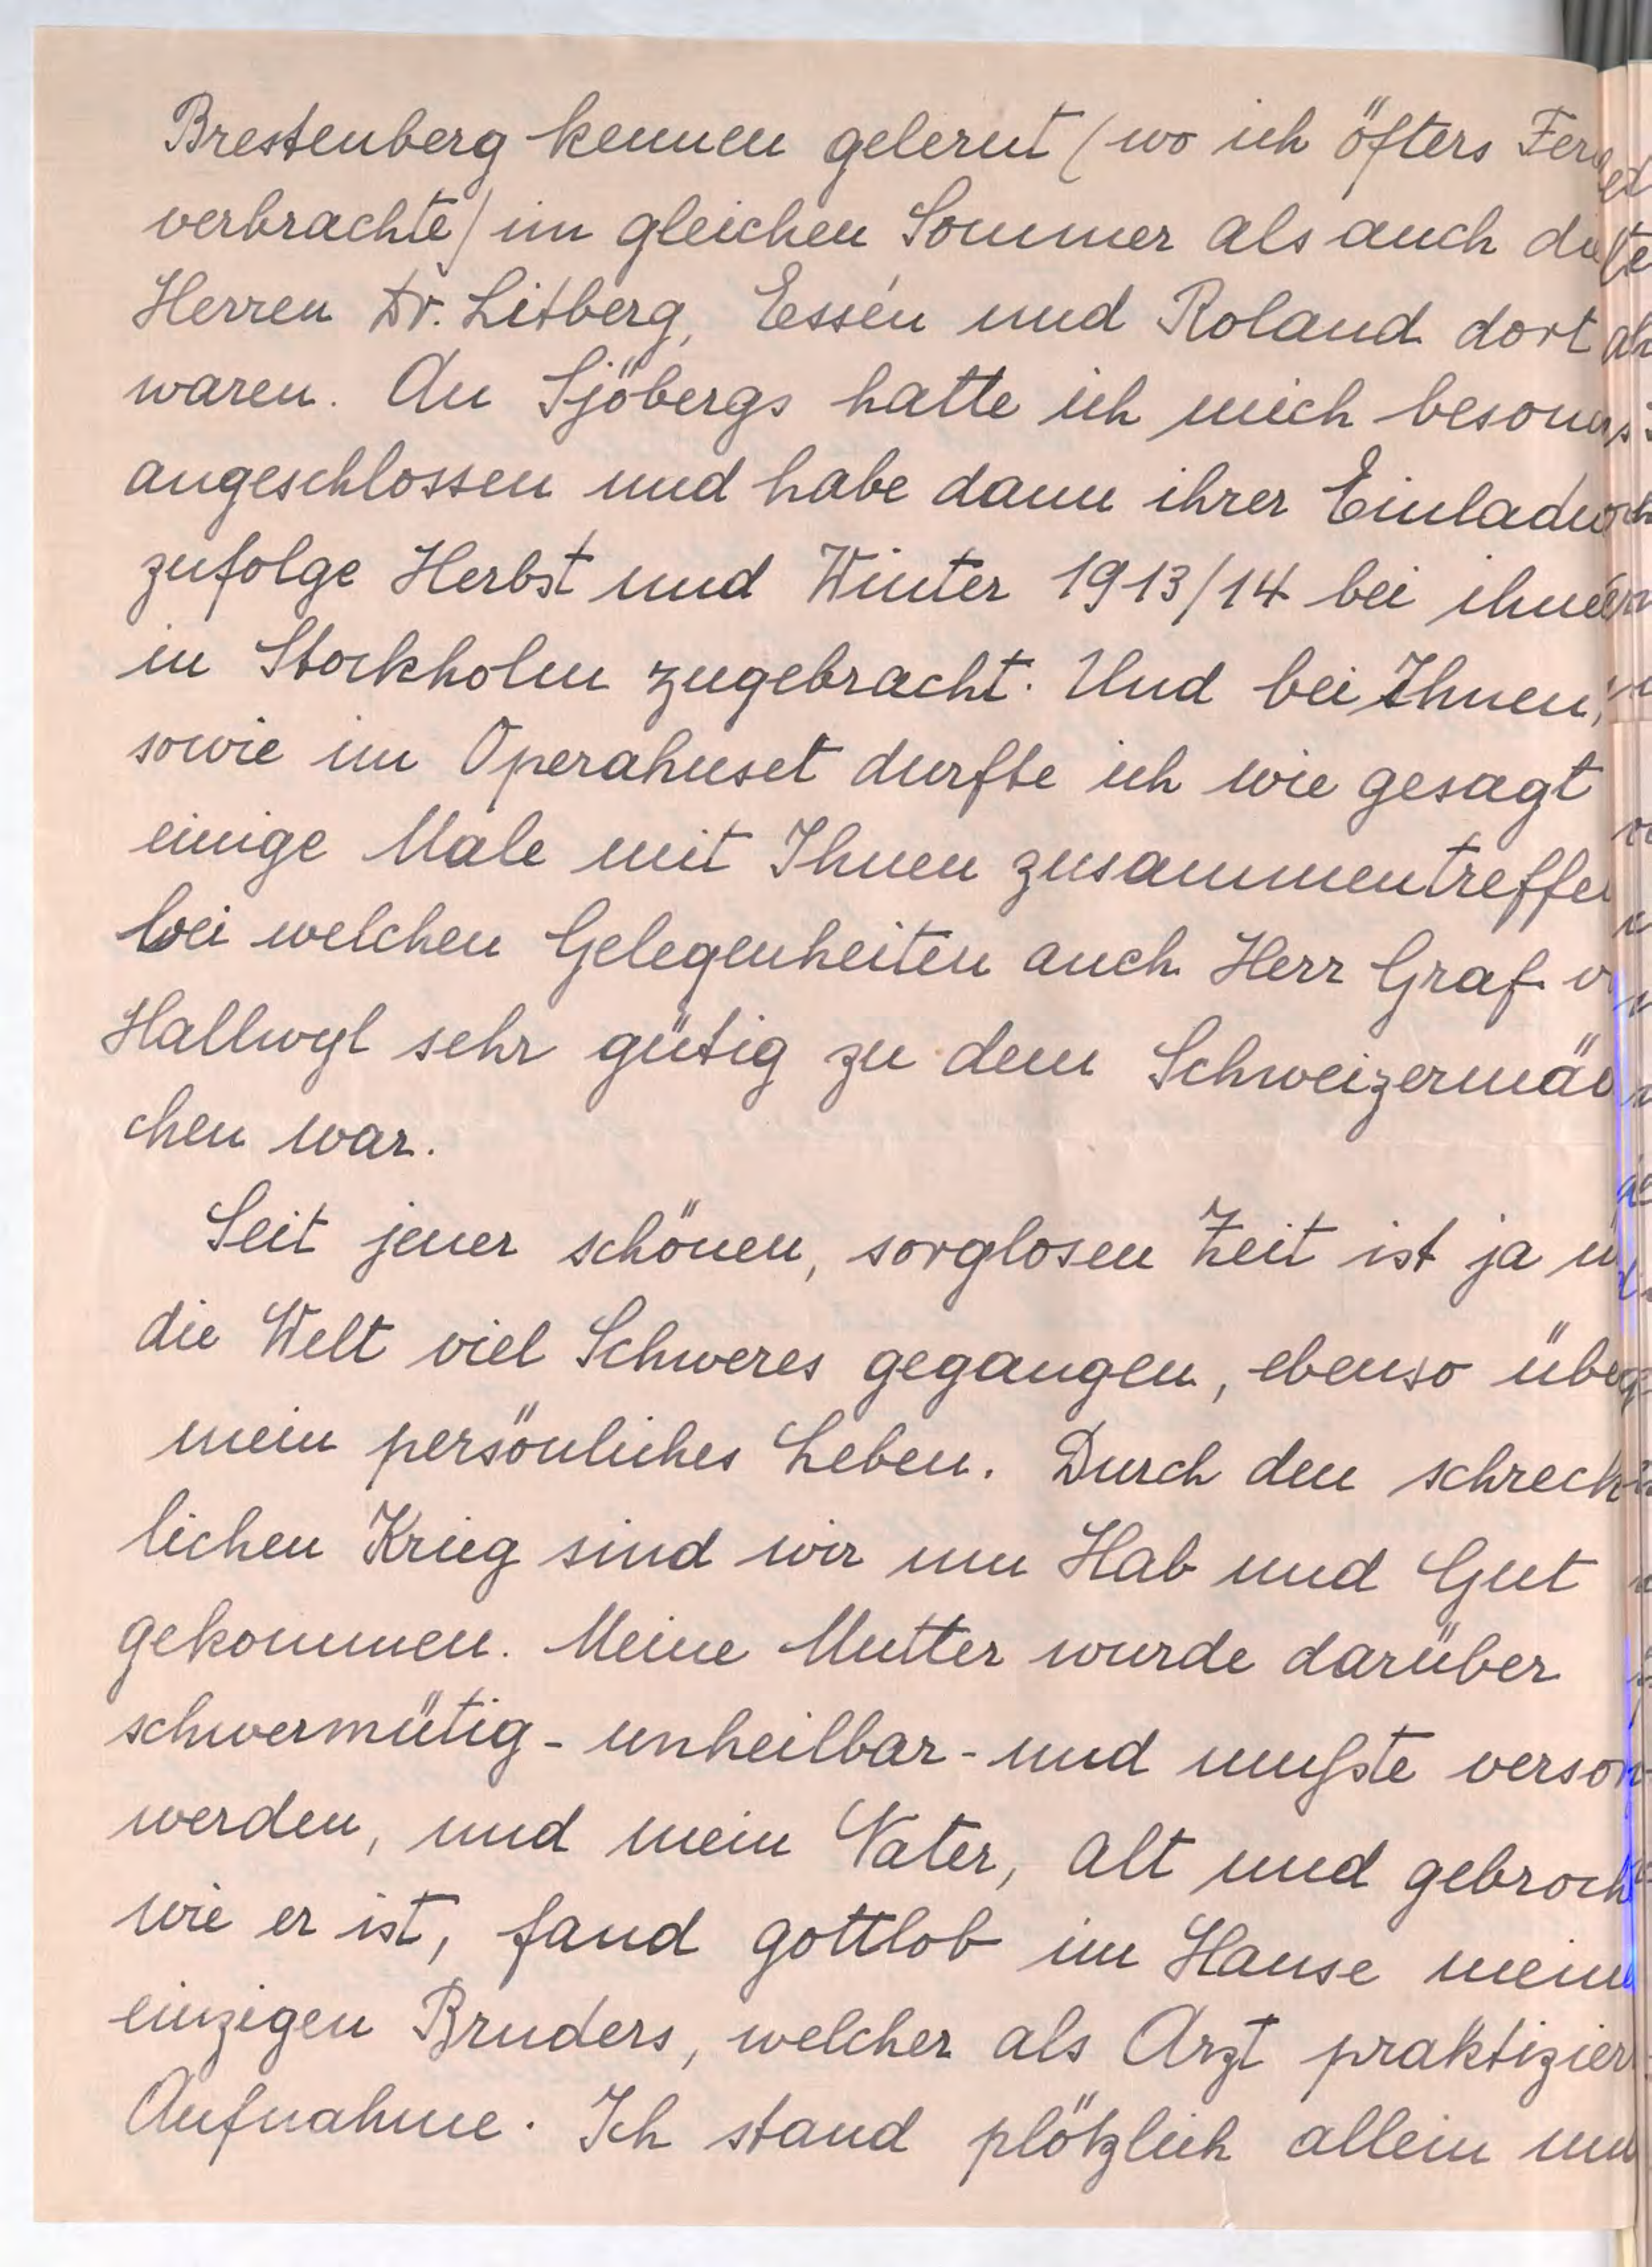 Brestenberg kennen gelernt (wo ich öfters Fer
verbrachte) im gleichen Sommer als auch die
Herren Dr. Litberg, Essén und Roland dort
waren. An Sjöbergs hatte ich mich beson
angeschlossen und habe dann ihrer Einladu
zufolge Herbst und Winter 1913/14 bei ihne
in Stockholm zugebracht. Und bei Ihnen,
sowie im Operahuset durfte ich wie gesagt
einige Male mit Ihnen zusammentreffe
bei welchen Gelegenheiten auch Herr Graf v
Hallwyl sehr gütig zu dem Schweizermäd
chen war.
Seit jener schönen, sorglosen Zeit ist ja ü
die Welt viel Schweres gegangen, ebenso übe
mein persönliches Leben. Durch den schreck
lichen Krieg sind wir um Hab und Gut
gekommen. Meine Mutter wurde darüber
schwermütig - unheilbar - und mußte verso
werden, und mein Vater, alt und gebroch
wie er ist, fand gottlob im Hause mein
einzigen Bruders, welcher als Arzt praktizier
Aufnahme. Ich stand plötzlich allein un